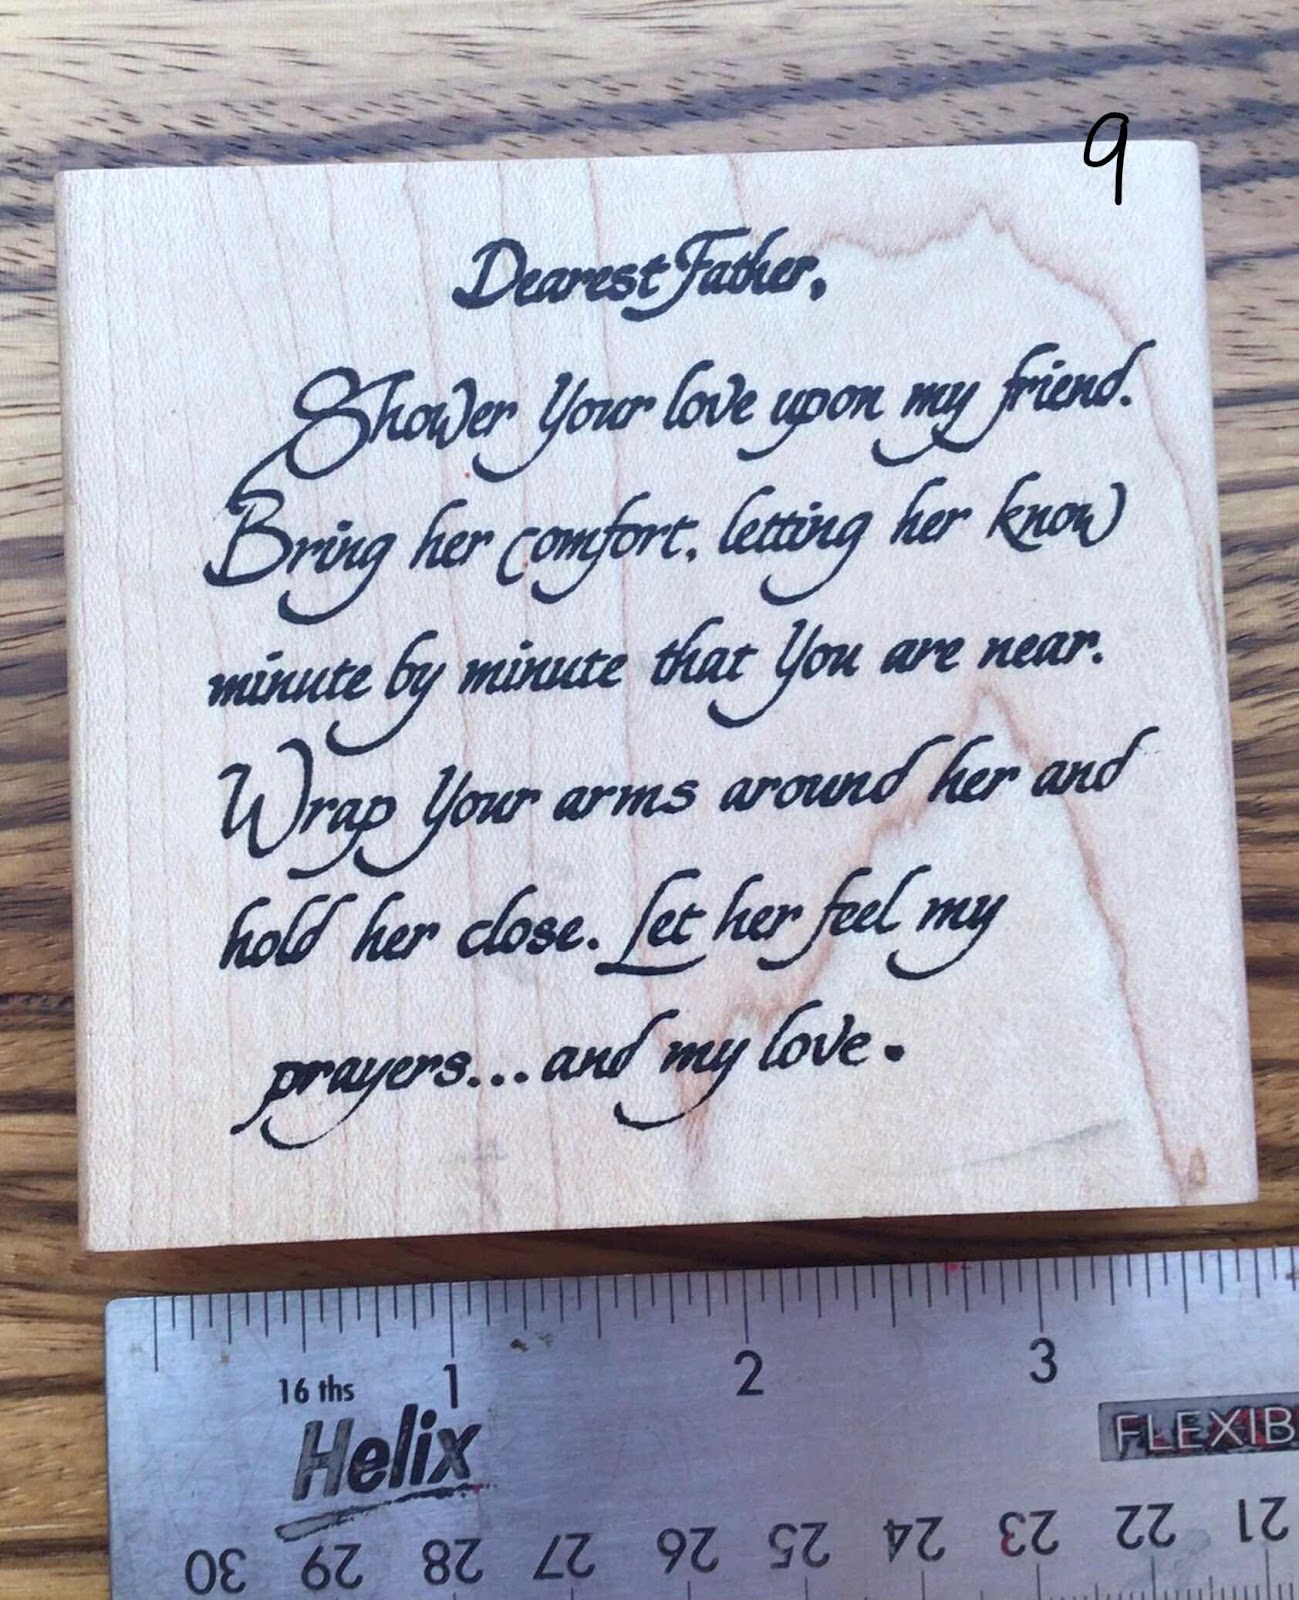 9
Dearest Father,
Shower Your love upon my friend.
Bring her comfort, letting her know
minute by minute that You are near.
Wrap Your arms around her and
hold her close. Let her feel my
prayers... and my love.
1 2 3
16 ths
Helix
FLEXIB
30 29 28 27 26 25 24 23 22 21